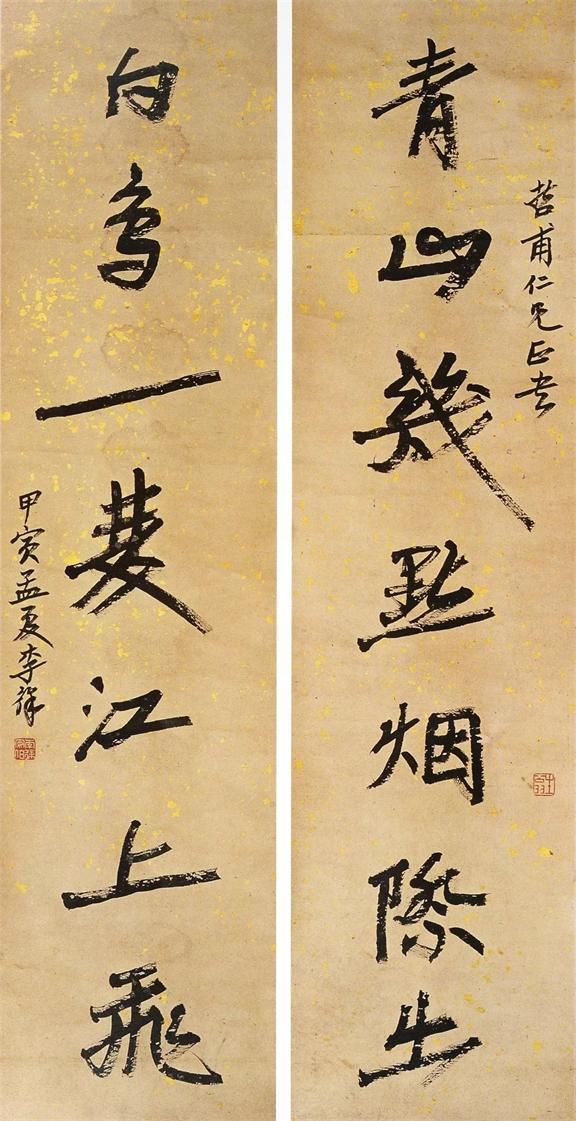 青山幾點烟際出
哲甫仁兄正
白鳥一雙江上飛
甲寅孟夏李詳